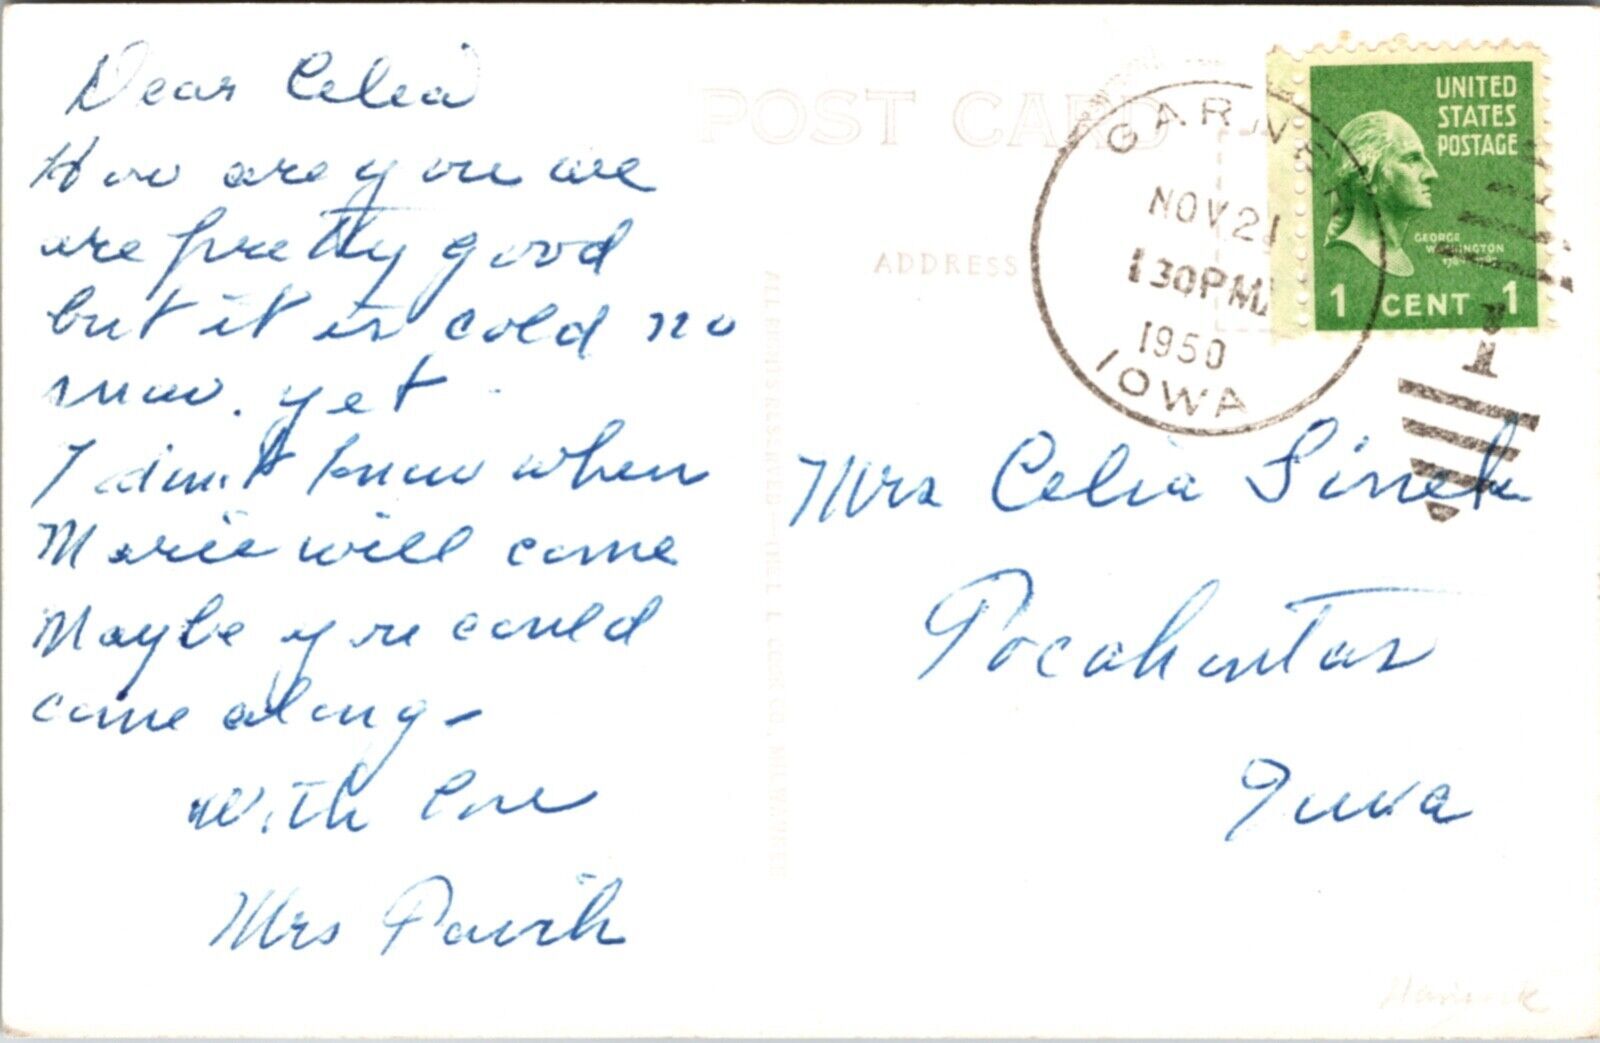 Dear Celia
How are you we
are pretty good
but it is cold no
snow. yet.
I don't know when
Marie will come
Maybe you could
come along-
With love
Mrs
POST CARD
ADDRESS
GARNER
NOV 21
1 30 PM
1950
IOWA
UNITED
STATES
POSTAGE
GEORGE
WASHINGTON
1 CENT 1
1
Mrs Celia
Pocahontas
Iowa